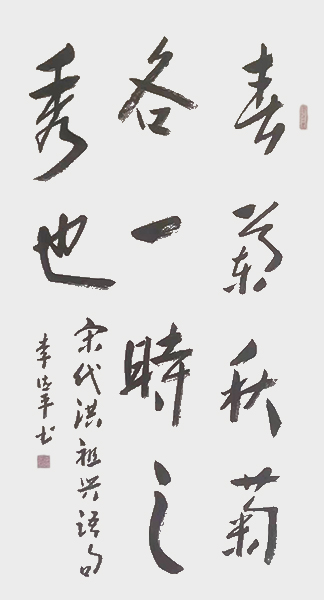 春兰秋菊
各一時之
秀也
宋代洪祖兴语句
李
平书